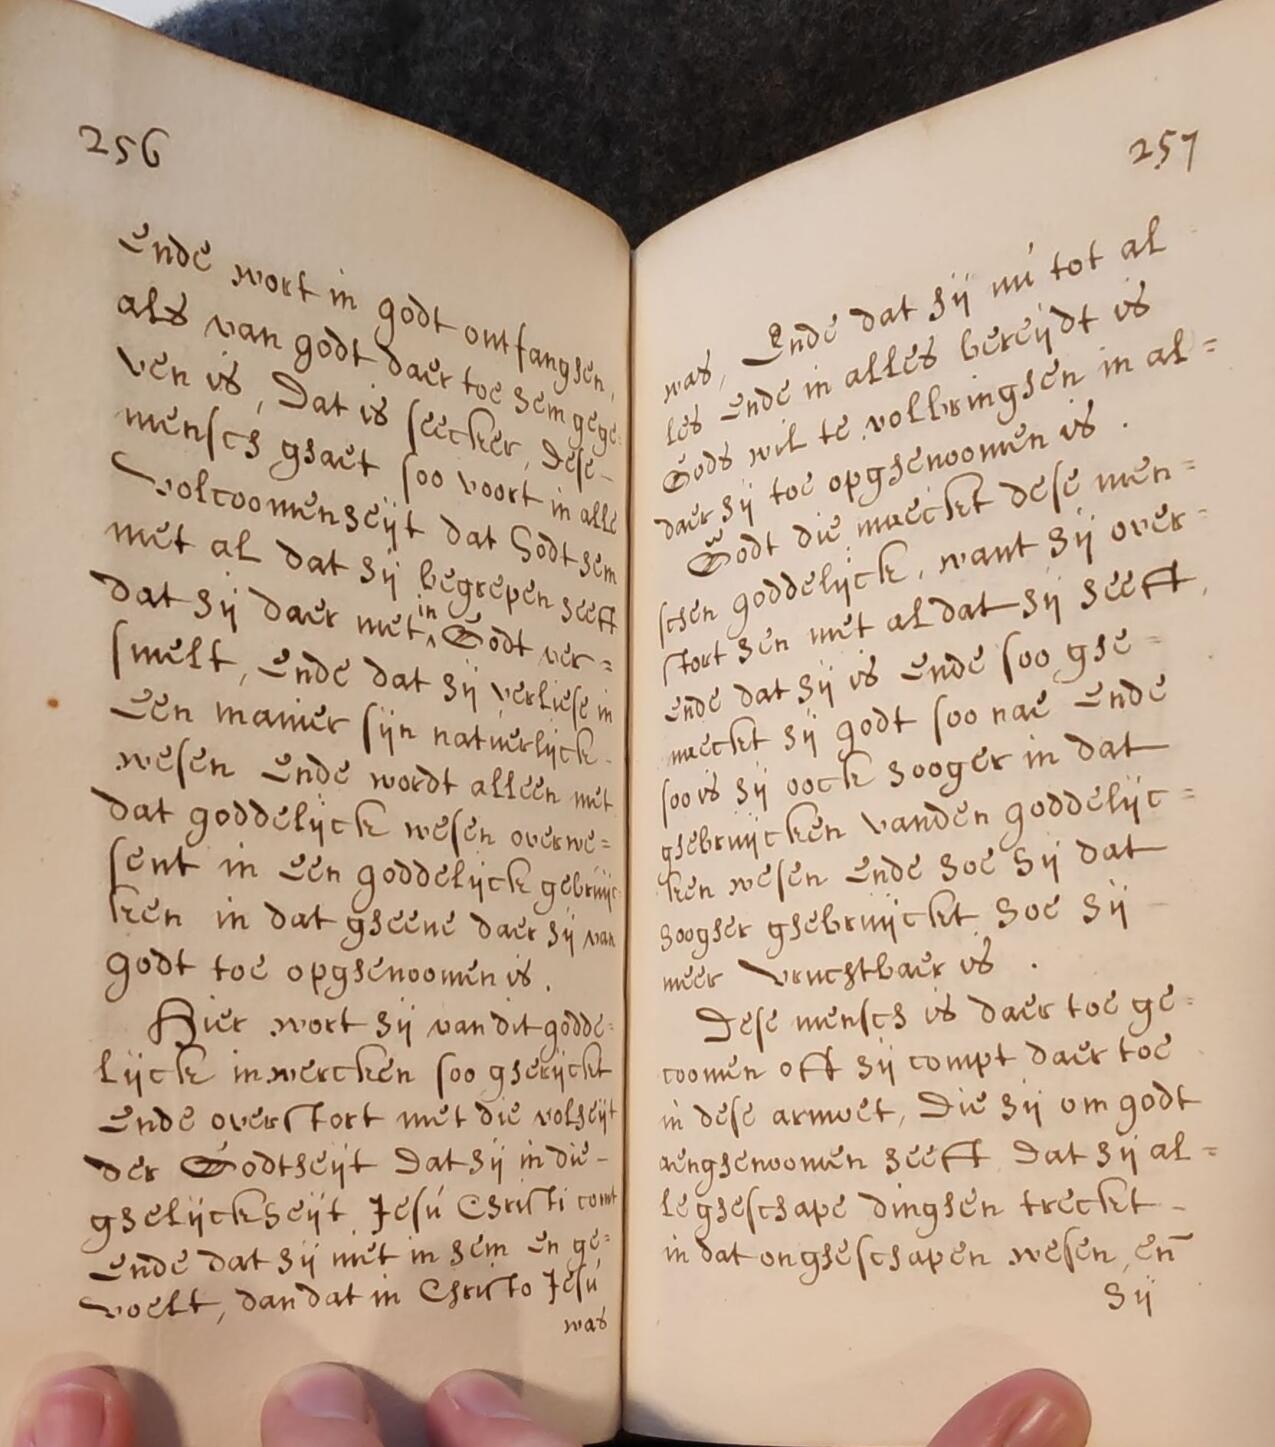 256
Ende wort in godt ontfanghen,
als van godt daer toe hem gege=
ven is, Dat is seecker, Dese
mensch ghaet soo voort in alle
volcoomenheijt dat Godt hem
met al dat hij begrepen heeft
dat hij daer met in Godt ver=
smelt, Ende dat hij verliese in
Een manier sijn natuerlijck
wesen Ende wordt alleen met
dat goddelijck wesen overwe=
sent in Een goddelijck gebruijc
ken in dat gheene daer hij van
godt toe opghenoomen is.
Hier wort hij van dit godde=
lijck inwercken soo gherijckt
Ende overstort met die volheijt
der Godtheijt Dat hij in die
ghelijckheijt Jesú Christi comt
Ende dat hij niet in hem En ge=
voelt, dan dat in Christo Jesú
was
257
was, Ende dat hij nú tot al
les Ende in alles bereijdt is
Gods wil te volbringhen in al=
daer hij toe opghenoomen is.
Godt die maeckt dese men=
schen goddelijck, want hij over=
stort hen met al dat hij heeft,
Ende dat hij is Ende soo ghe=
maeckt hij godt soo nae Ende
soo is hij oock hooger in dat
ghebruijcken vanden goddelijc=
ken wesen Ende hoe hij dat
hoogher ghebruijckt hoe hij
meer vruchtbaer is.
Dese mensch is daer toe ge=
coomen oft hij compt daer toe
in dese armoet, Die hij om godt
aenghenoomen heeft Dat hij al=
le gheschape dinghen treckt
in dat ongheschapen wesen, en̄
hij